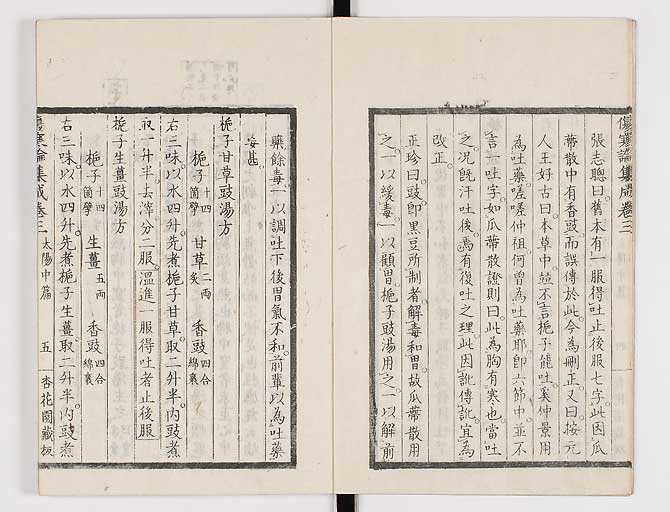 傷寒論集成卷三
張志聰曰。舊本有一服得吐止後服七字。此因瓜
蒂散中有香豉而誤傳於此。今爲刪正。又曰。按元
人王好古曰。本草中並不言梔子能吐。奚仲景用
爲吐藥。嗟嗟。仲祖何曾爲吐藥耶。卽六節中。並不
言一吐字。如瓜蒂散證則曰。此爲胸有寒也。當吐
之。況旣汗吐後。焉有復吐之理。此因訛傳訛。宜爲
改正。
正珍曰。豉卽黑豆所制者。解毒和胃。故瓜蒂散用
之。一以緩毒。一以顧胃。梔子豉湯用之。一以解前
藥餘毒。一以調吐下後胃氣不和。前輩以爲吐藥
妄甚。
梔子甘草豉湯方
梔子十四箇擘 甘草二兩炙 香豉四合綿裹
右三味。以水四升。先煮梔子甘草。取二升半。內豉。煮
取一升半。去滓。分二服。溫進一服。得吐者止後服
梔子生薑豉湯方
梔子十四箇擘 生薑五兩 香豉四合綿裹
右三味。以水四升。先煮梔子生薑。取二升半。內豉。煮
傷寒論集成卷三 太陽中篇 五 杏花園藏板